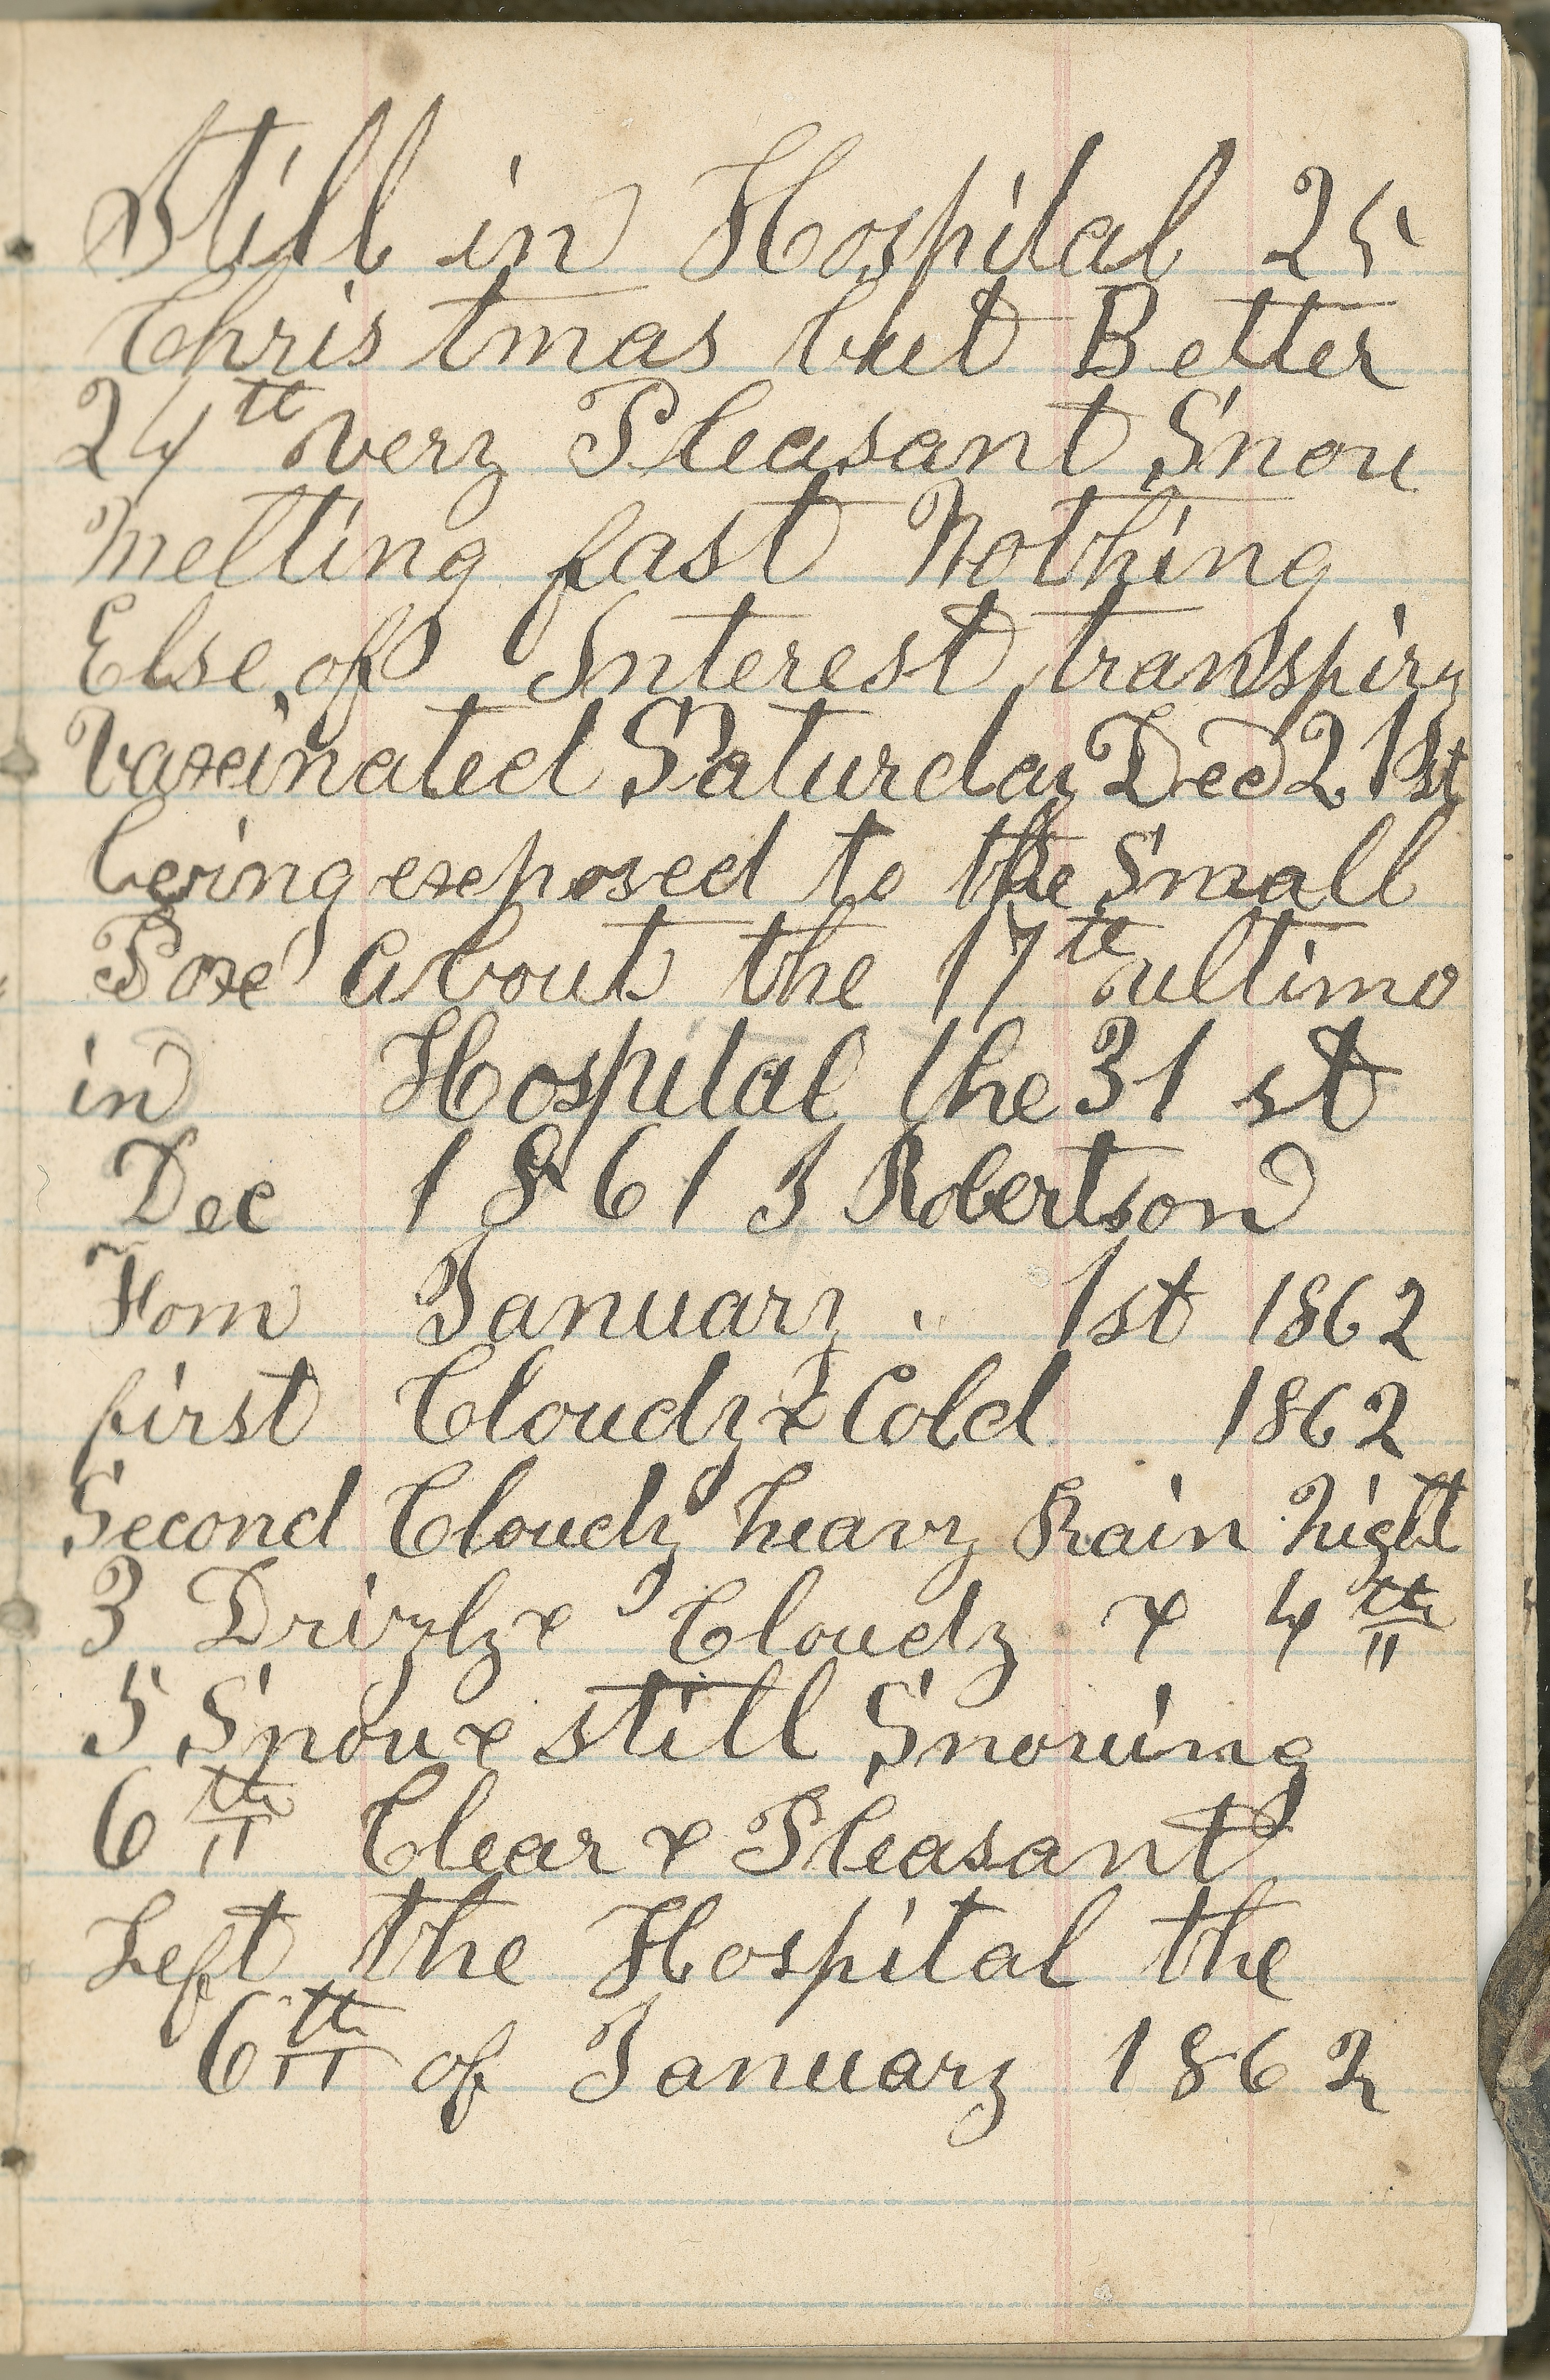 Still in Hospital 25
Christmas but Better
24th very Pleasant Snow
Melting fast Nothing
Else of Interest transpir
Vaxinated Saturday Dec 21st
being exposed to the Small
Pox about the 17th ultimo
in Hospital the 31 st
Dec 1861 J Robertson
From January 1st 1862
first Cloudy & Cold 1862
Second Cloudy heavy Rain Night
3 Drizly & Cloudy & 4th
5 Snow & still Snowing
6th Clear & Pleasant
Left the Hospital the
6th of January 1862